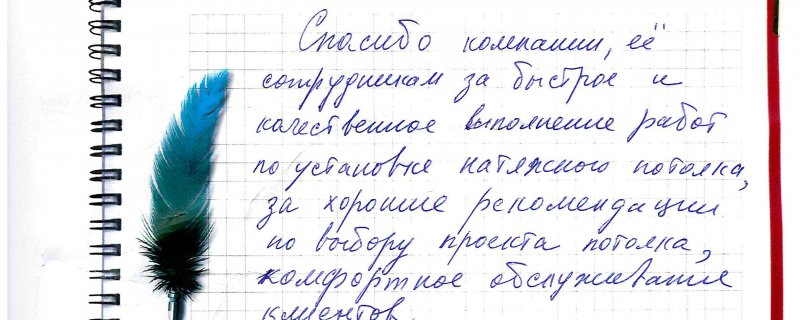 Спасибо компании, её
сотрудникам за быстрое и
качественное выполнение работ
по установке натяжного потолка,
за хорошие рекомендации
по выбору проекта потолка,
комфортное обслуживание
клиентов.